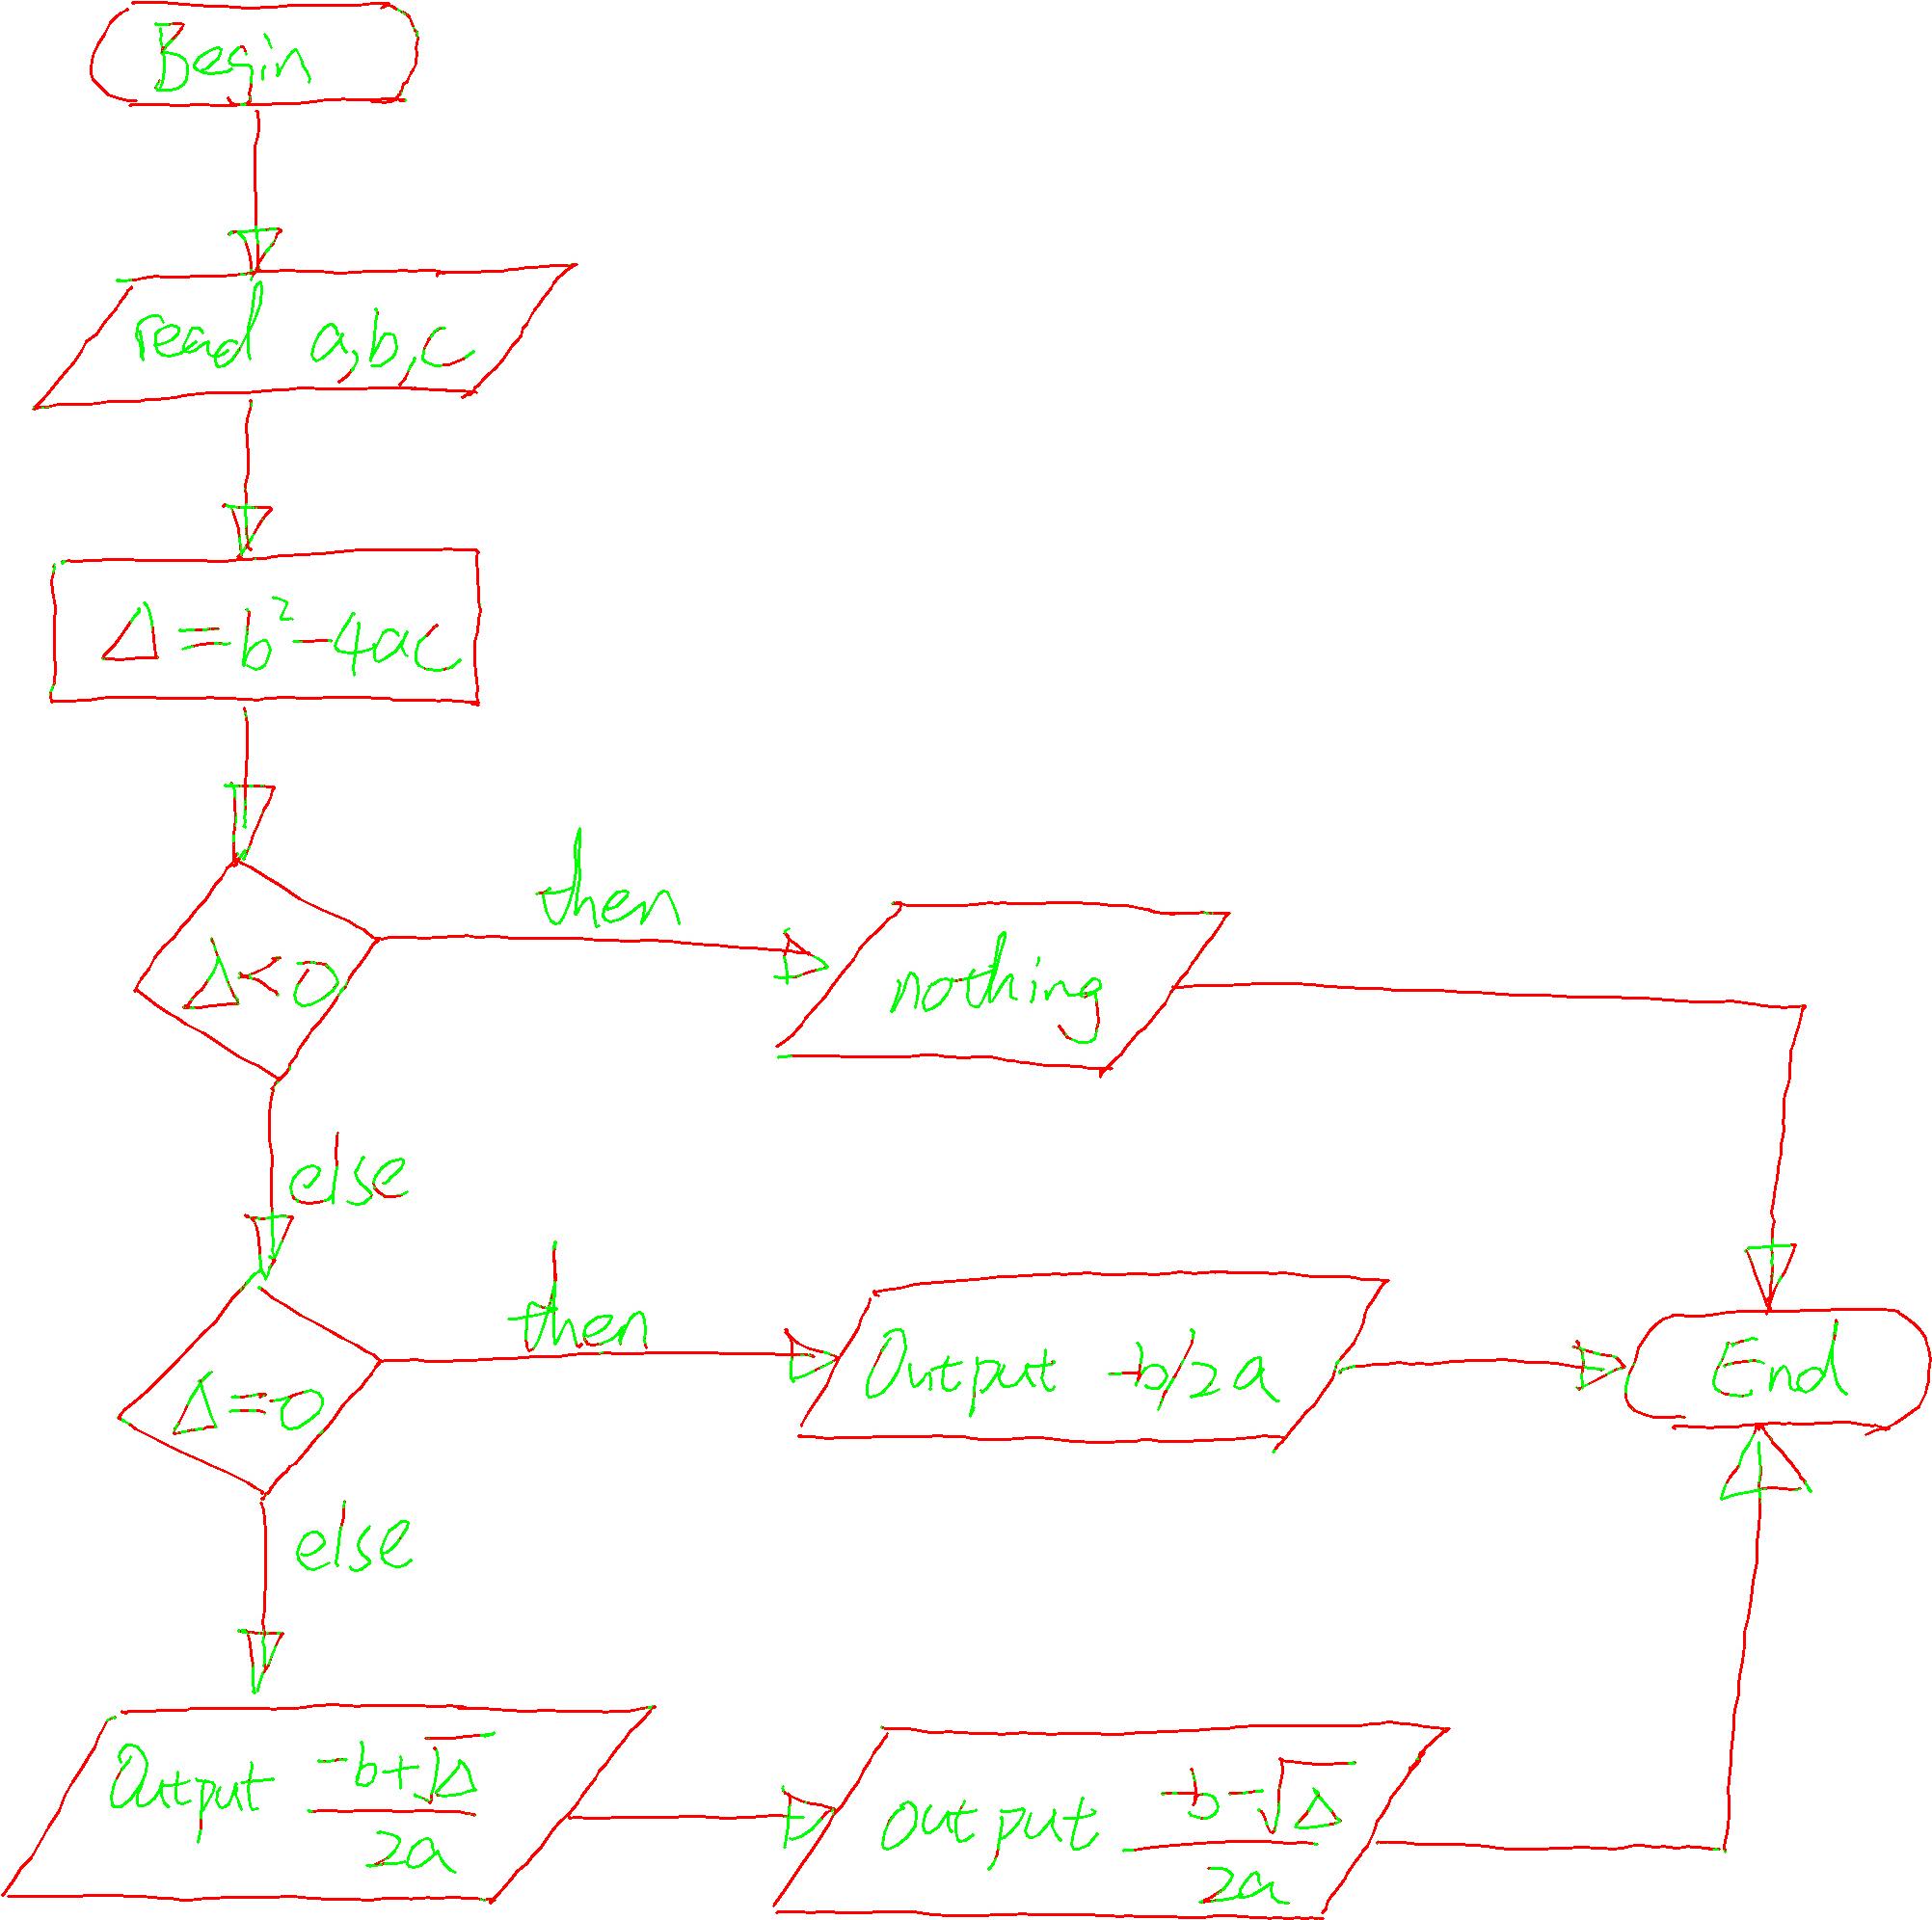 Begin
read a,b,c
Δ=b²-4ac
then
Δ<0
nothing
else
then
Δ=0
Output -b/2a
End
else
Output (-b+√Δ)/2a
output (-b-√Δ)/2a